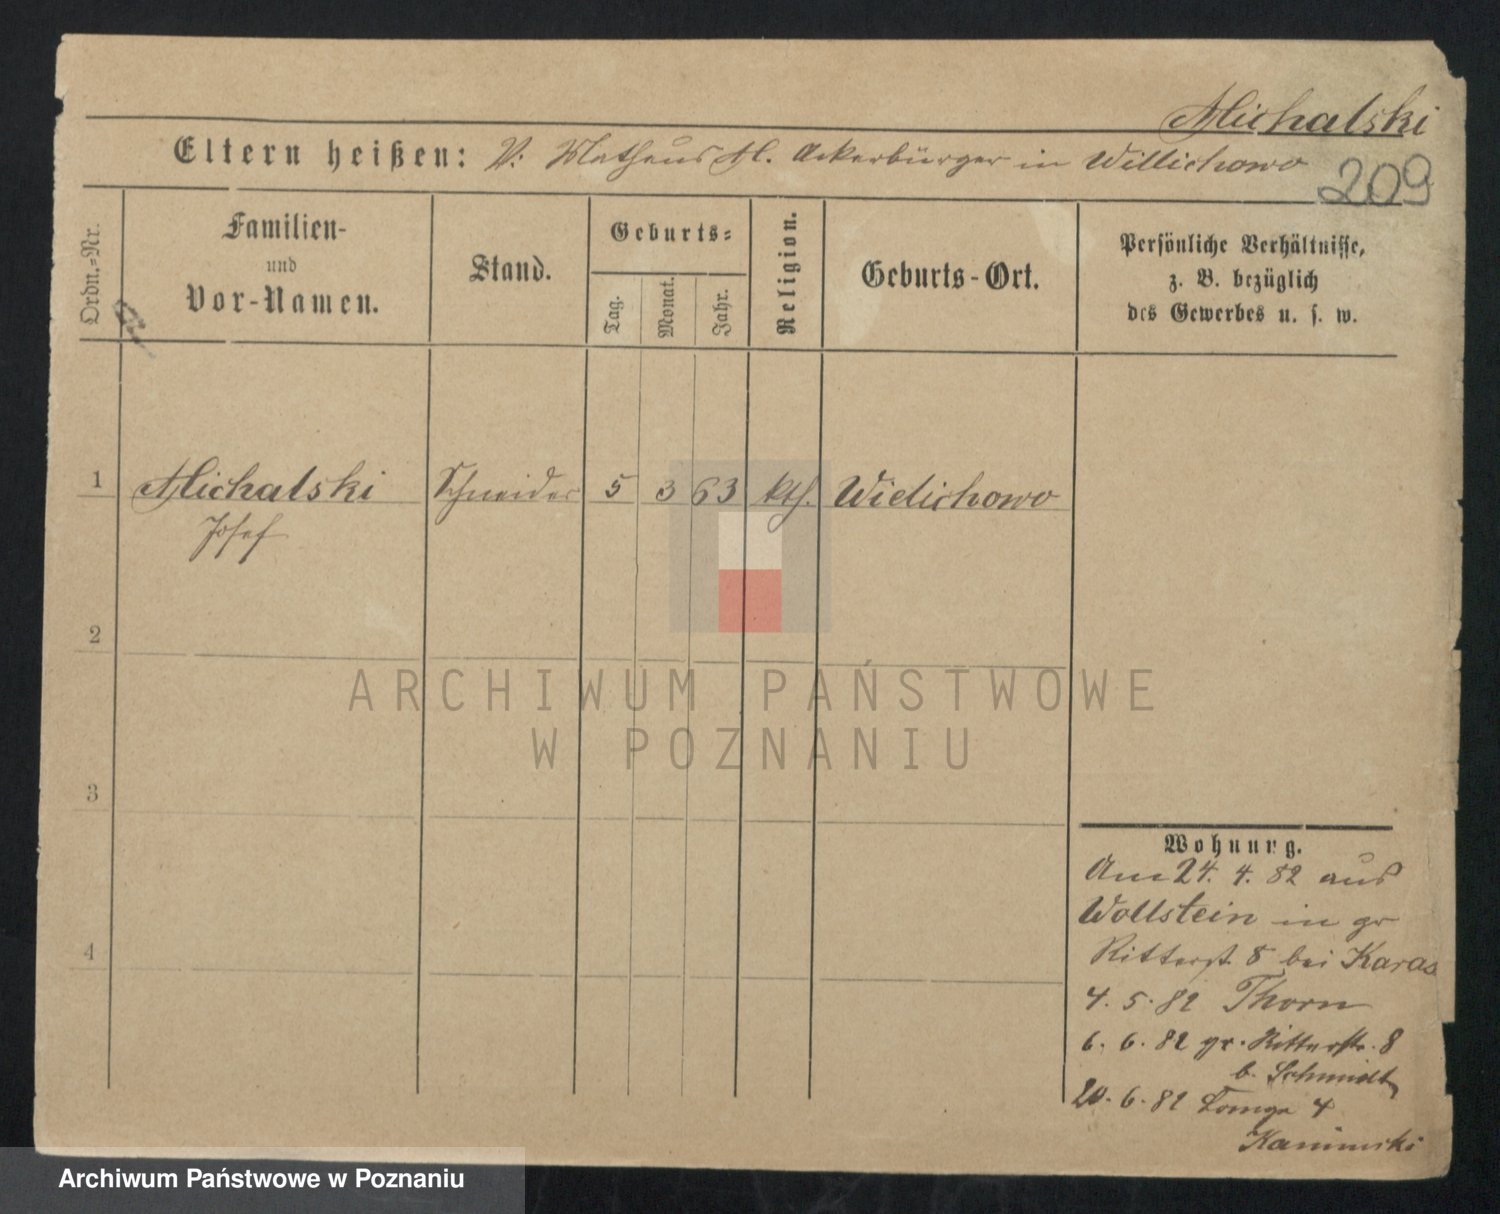 Michalski
Eltern heißen: V: Matheus M. Ackerbürger in Willichowo
209
Ordn.-Nr.
Familien-
und
Vor-Namen.
Stand.
Geburts-
Tag.
Monat.
Jahr.
Religion.
Geburts-Ort.
Persönliche Verhältnisse,
z. B. bezüglich
des Gewerbes u. s. w.
1
Michalski
Josef
Schneider
5
3
63
kth.
Wielichowo
2
3
4
Wohnung.
Am 24. 4. 82 aus
Wollstein in gr
Ritterst. 8 bei Karas
4. 5. 82 Thorn
6. 6. 82 gr. Ritterstr. 8
b. Schmidt
20. 6. 82 4
Kaminski
ARCHIWUM PAŃSTWOWE
W POZNANIU
Archiwum Państwowe w Poznaniu